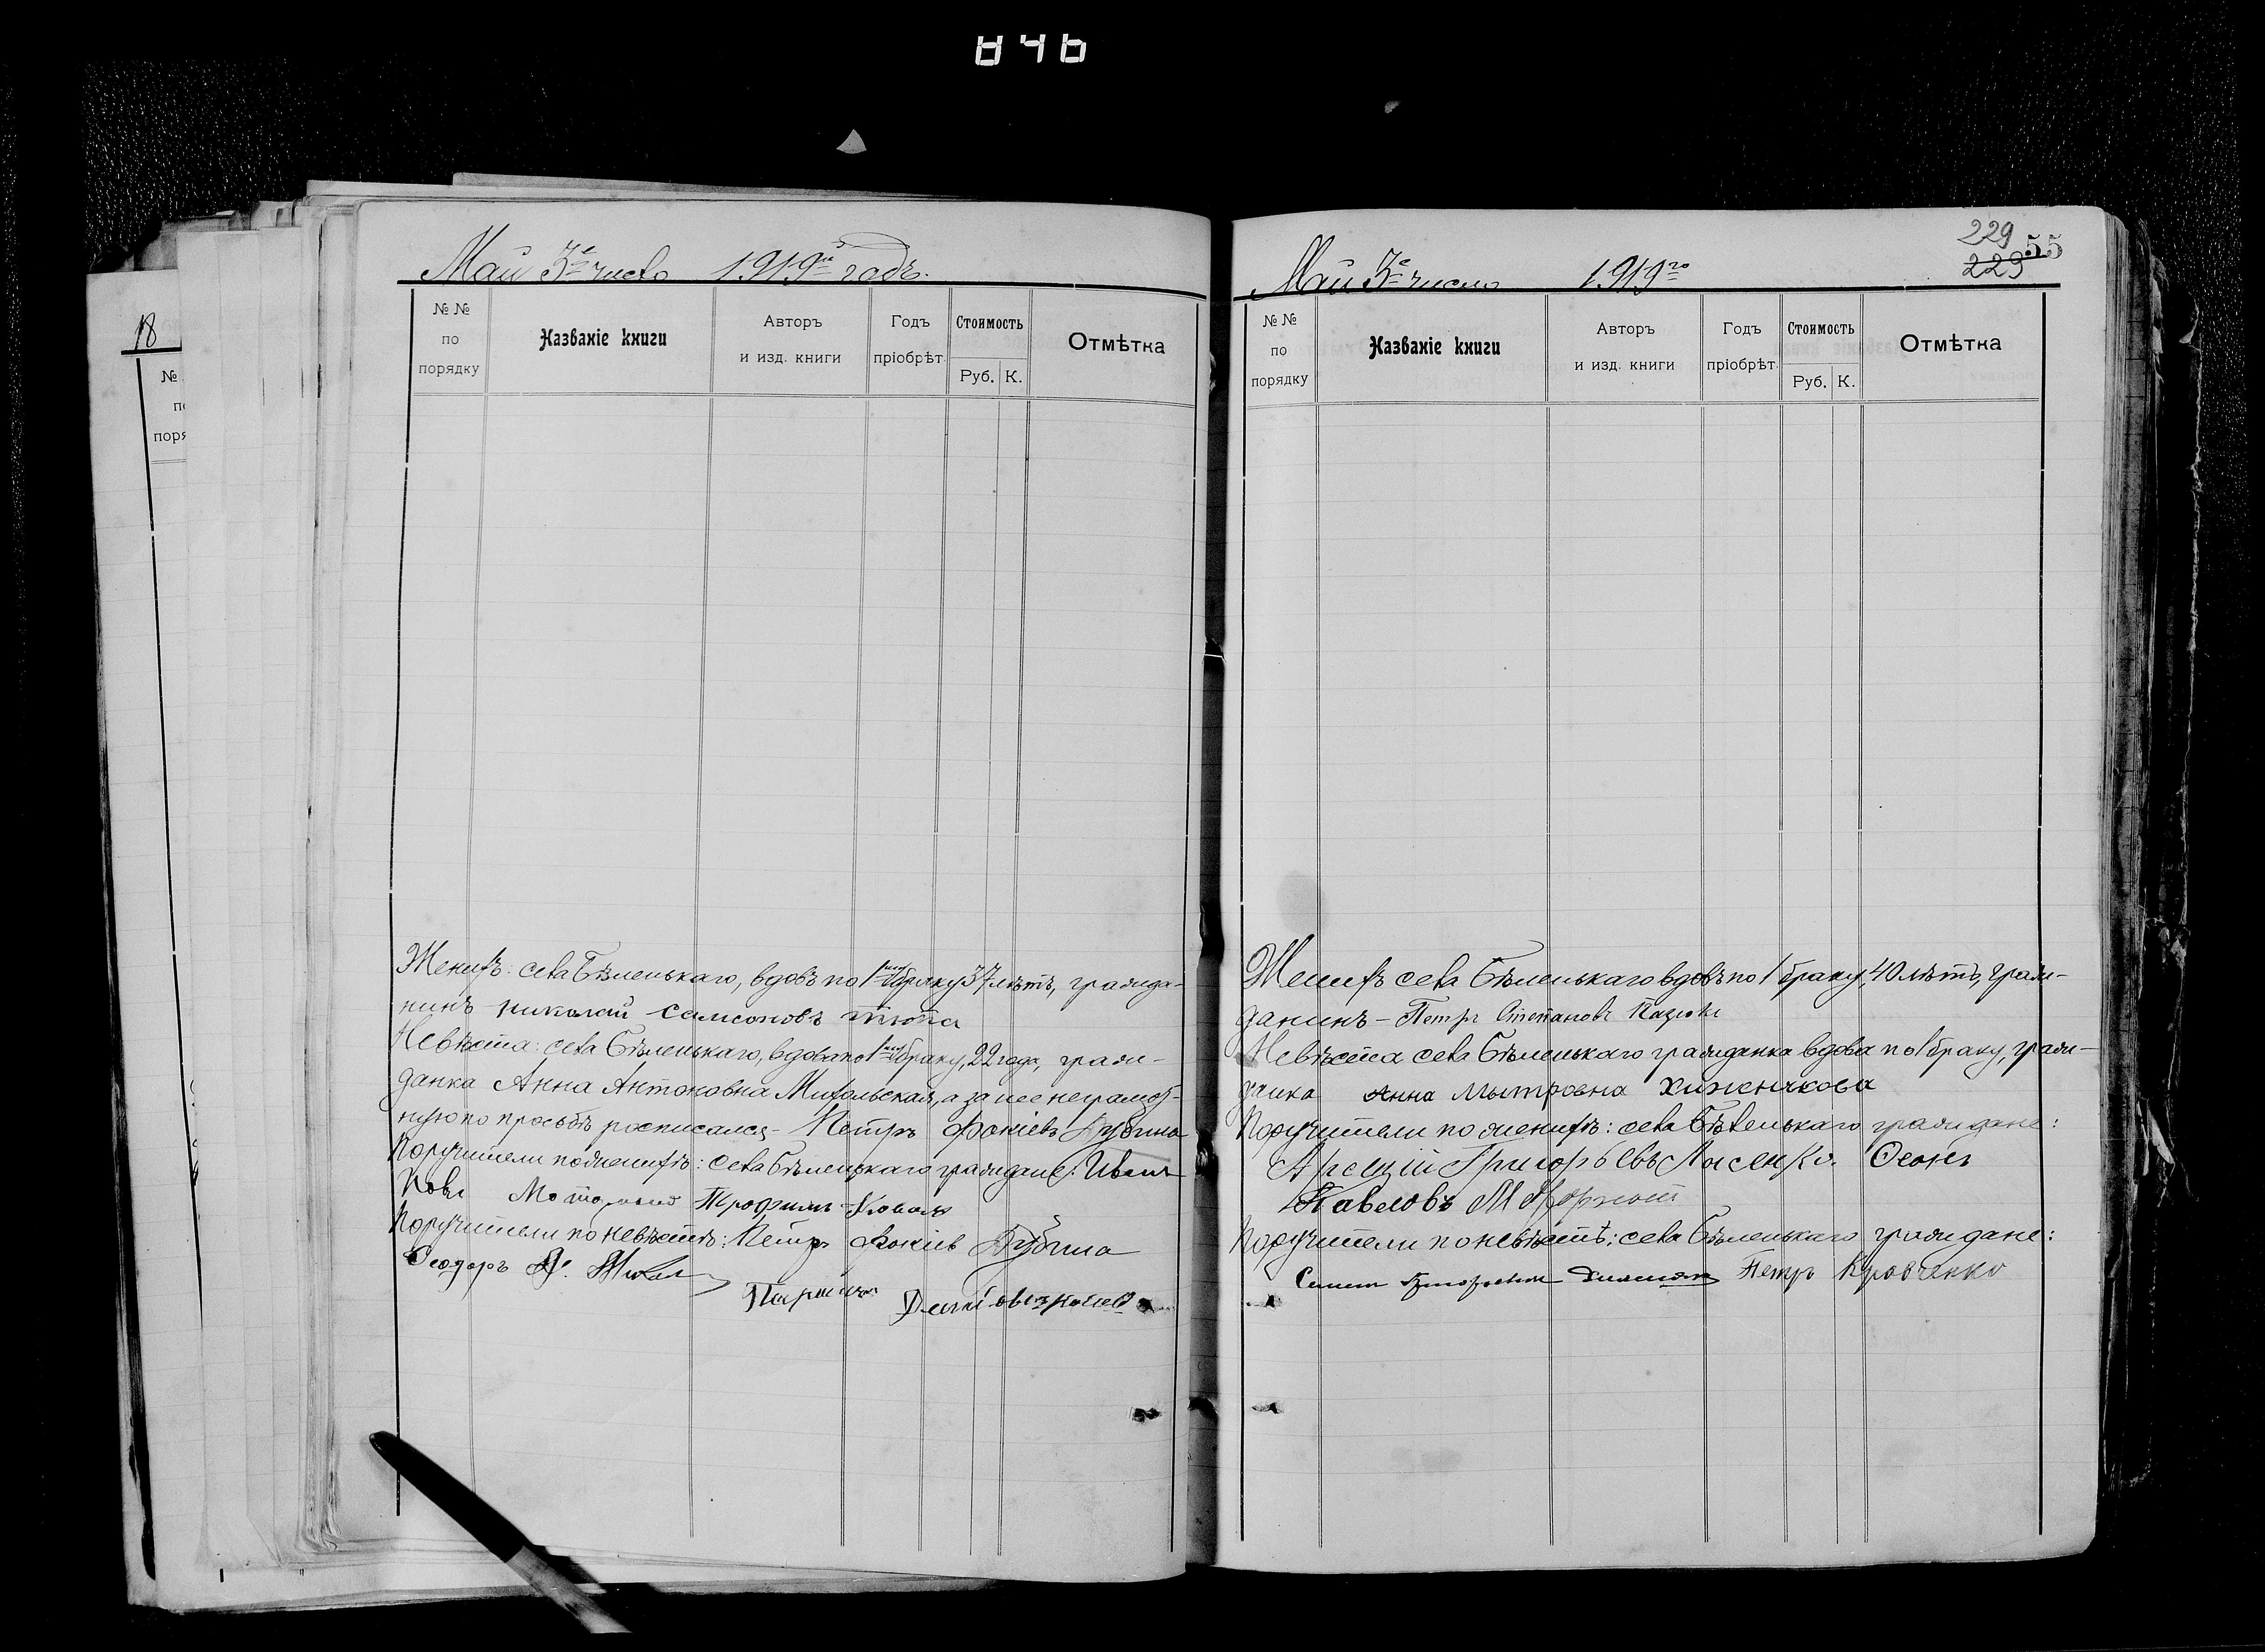 846
18
№
по
поря
Май 3е число 1919й годъ.
№ №
по
порядку
Названіе книги
Авторъ
и изд. книги
Годъ
пріобрѣт.
Стоимость
Руб. К.
Отмѣтка
Женихъ: села Бѣленькаго, вдовъ по 1му браку 37 лѣтъ, гражда-
нинъ Николай Самсоновъ
Невѣста: села Бѣленькаго, вдова по 1му браку, 22 года, граж-
данка Анна Антоновна Михальская, а за нее неграмот-
ную по просьбѣ росписался - Петръ Фокіевъ Дубина
Поручители по женихѣ: села Бѣленькаго граждане: Иванъ
Трофимъ Коваль
Поручители по невѣстѣ: Петръ Фокіев Дубина
Феодоръ
229
229
55
Май 3е число 1919го
№ №
по
порядку
Названіе книги
Авторъ
и изд. книги
Годъ
пріобрѣт.
Стоимость
Руб. К.
Отмѣтка
Женихъ села Бѣленькаго вдовъ по 1 браку, 40 лѣтъ, граж-
данинъ - Петръ Степановъ
Невѣста села Бѣленькаго гражданка вдова по 1 браку, граж-
данка Анна Мытровна Хиженкова
Поручители по женихѣ: села Бѣленькаго граждане:
Арсеній Григорьевъ Лысенко.
Павловъ
Поручители по невѣстѣ: села Бѣленькаго граждане:
Петръ Кравченко